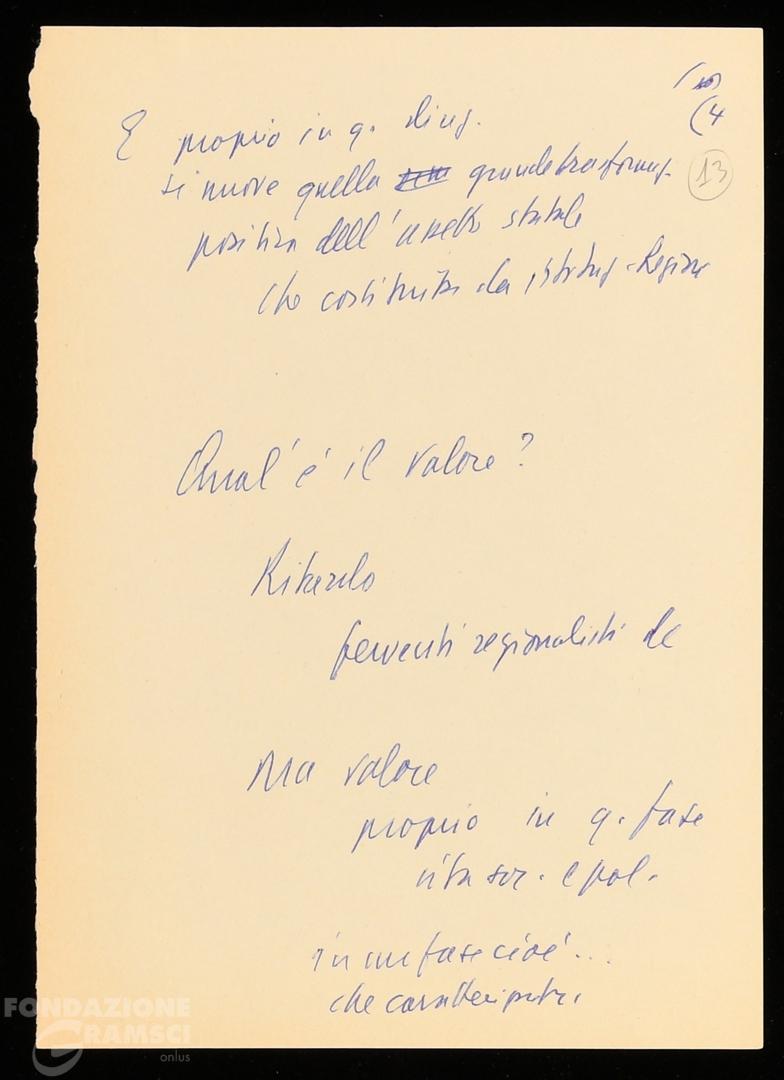 (4
13
E proprio in q. direz.
si muove quella grande trasformaz.
positiva dell'assetto statale
che costituita da istituz. Regione
Qual'è il valore?
Ritardo
ferventi regionalisti dc
Ma valore
proprio in q. fase
vita soc. e pol.
in una fase cioè...
che caratterizzata
FONDAZIONE
GRAMSCI
onlus